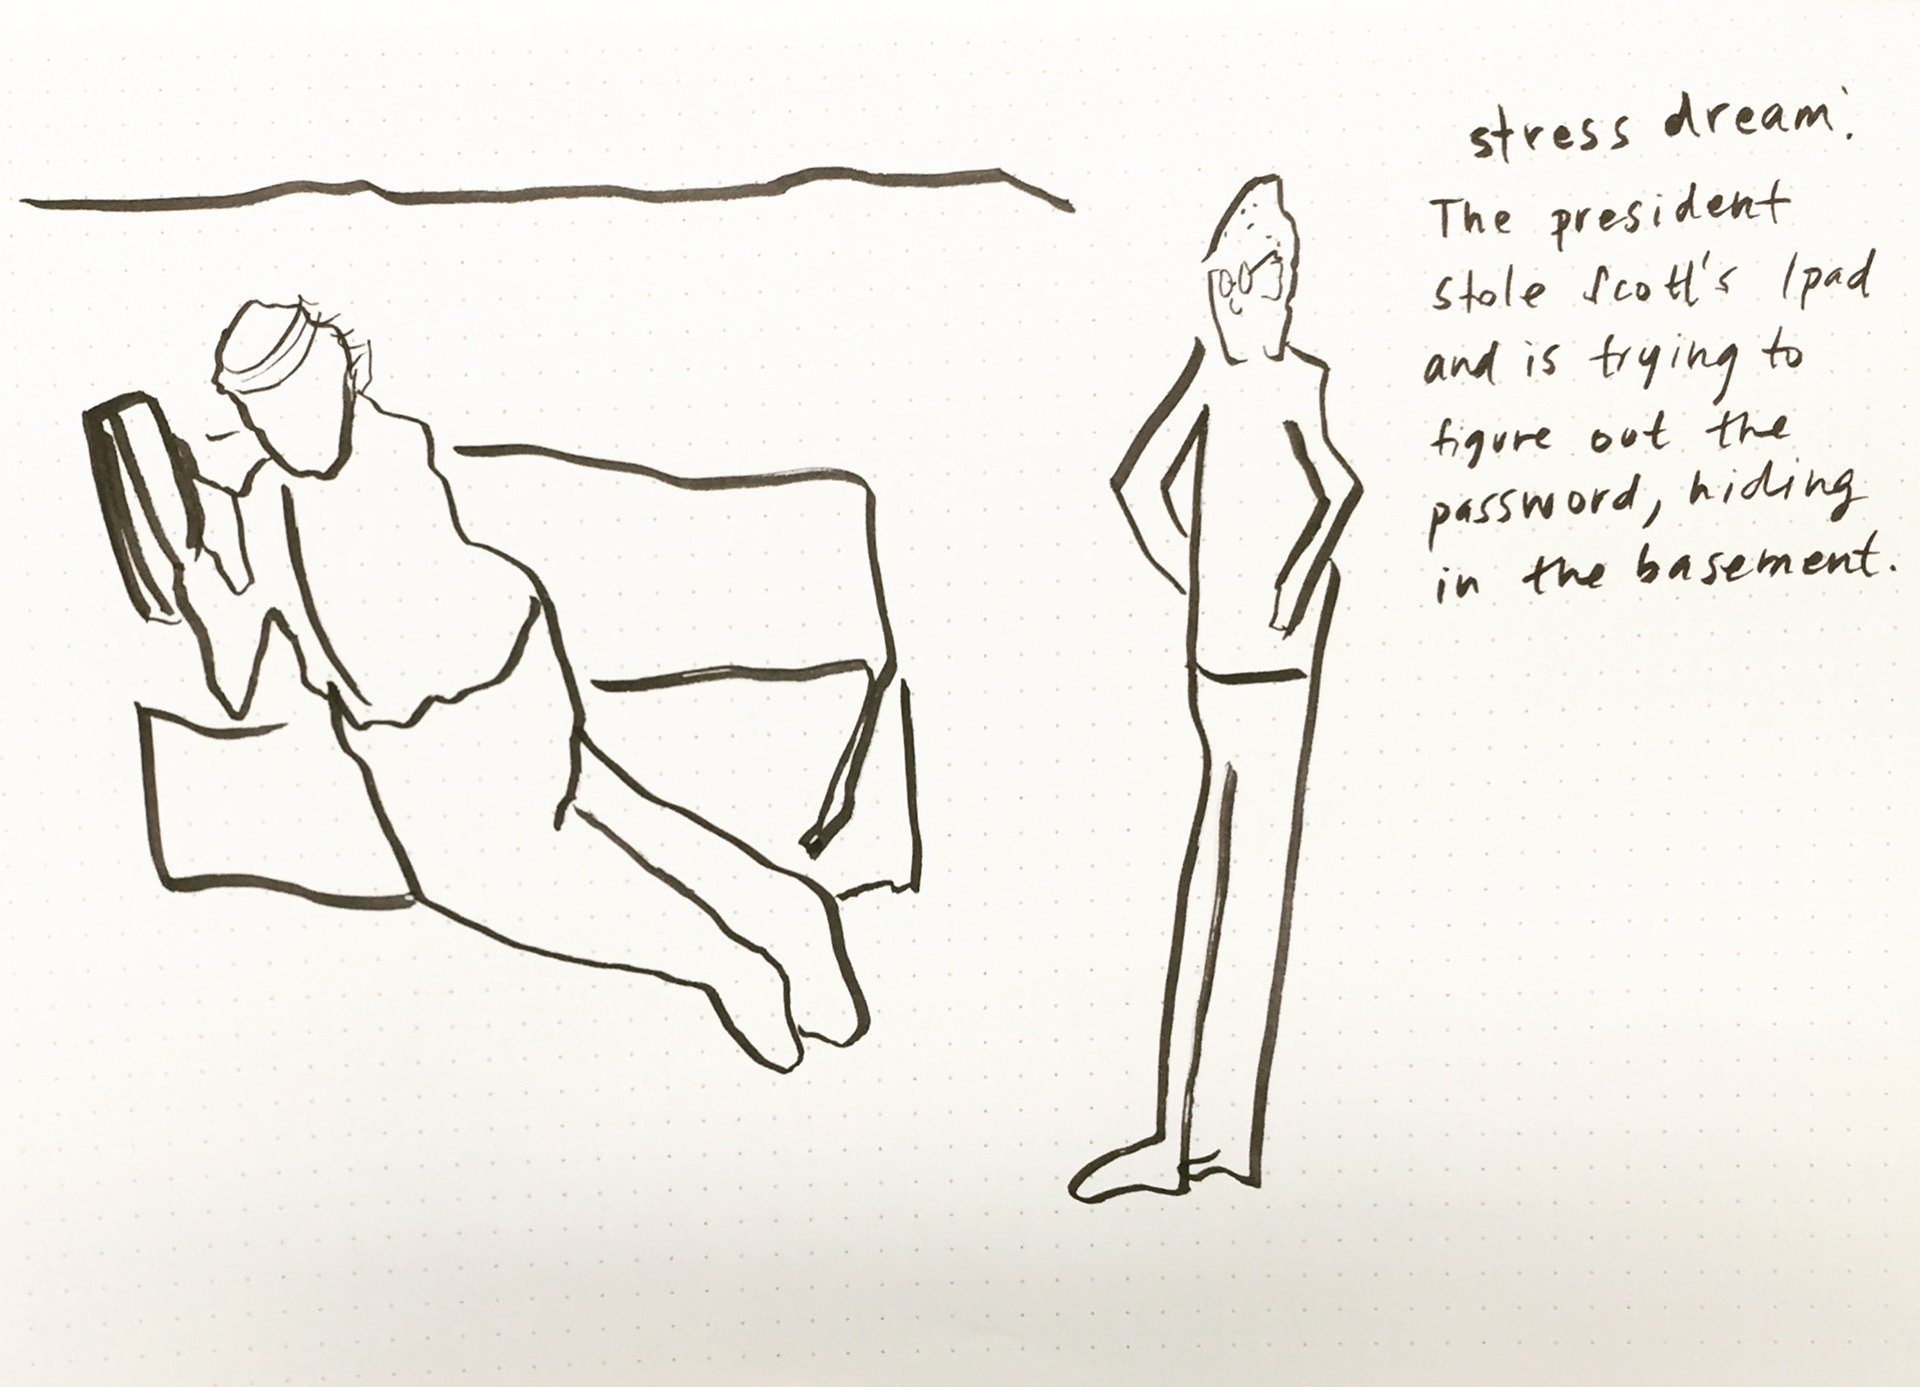 stress dream:
The president
stole Scott's Ipad
and is trying to
figure out the
password, hiding
in the basement.